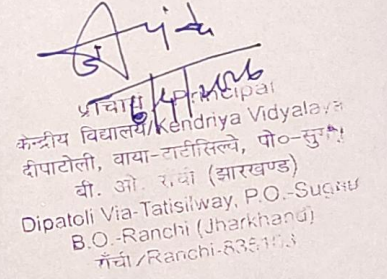 प्राचार्य/Principal
केन्द्रीय विद्यालय/Kendriya Vidyalaya
दीपाटोली, वाया-टाटीसिल्वे, पो०-सुगनु
बी. ओ. रांची (झारखण्ड)
Dipatoli Via-Tatisilway, P.O.-Sugnu
B.O.-Ranchi (Jharkhand)
राँची/Ranchi-835103